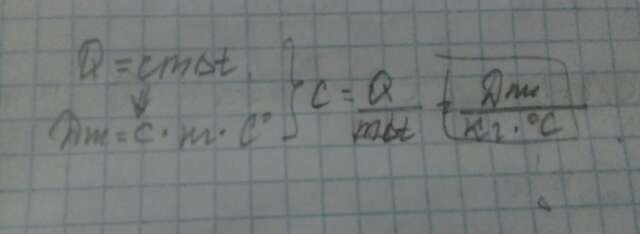 Q = cmΔt
Дж = C · кг · C°
} C = Q / mΔt [Дж / кг · °C]